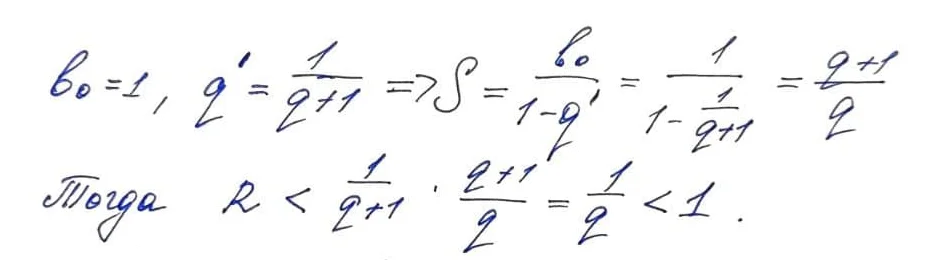 b₀ = 1, q' = 1/(q+1) => S = b₀/(1-q') = 1/(1 - 1/(q+1)) = (q+1)/q
Тогда R < 1/(q+1) · (q+1)/q = 1/q < 1.